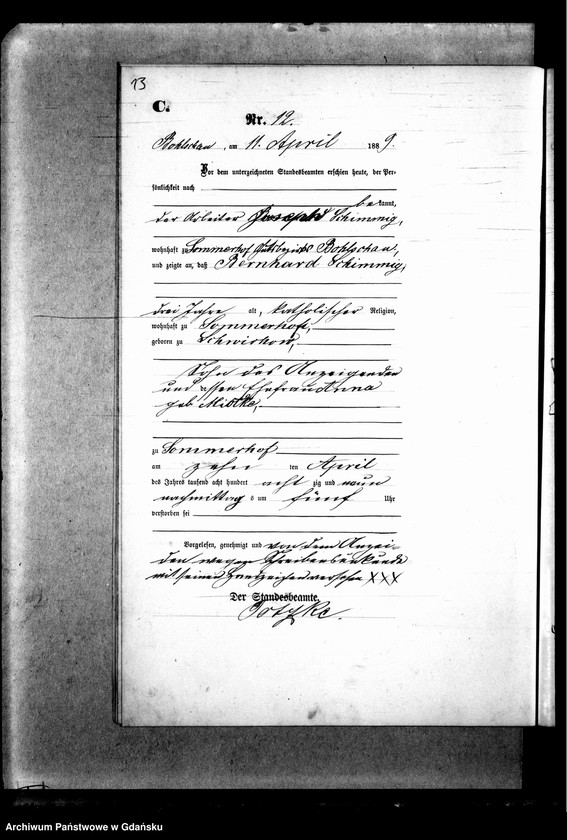 13
C.
Nr. 12.
Bohlschau, am 11. April 1889.
Vor dem unterzeichneten Standesbeamten erschien heute, der Per-
sönlichkeit nach
bekannt,
der Arbeiter Joseph Schimmig,
wohnhaft zu Sommerhof Gutsbezirks Bohlschau,
und zeigte an, daß Bernhard Schimmig,
drei Jahre alt, katholischer Religion,
wohnhaft zu Sommerhof,
geboren zu
Sohn des Anzeigenden
und dessen Ehefrau Anna
geb.
zu Sommerhof
am zehn ten April
des Jahres tausend acht hundert acht zig und neun
nachmittags um fünf Uhr
verstorben sei
Vorgelesen, genehmigt und von dem Anzei-
den wegen Schreibensunkunde
mit seinem Handzeichen versehen XXX
Der Standesbeamte.
Archiwum Państwowe w Gdańsku